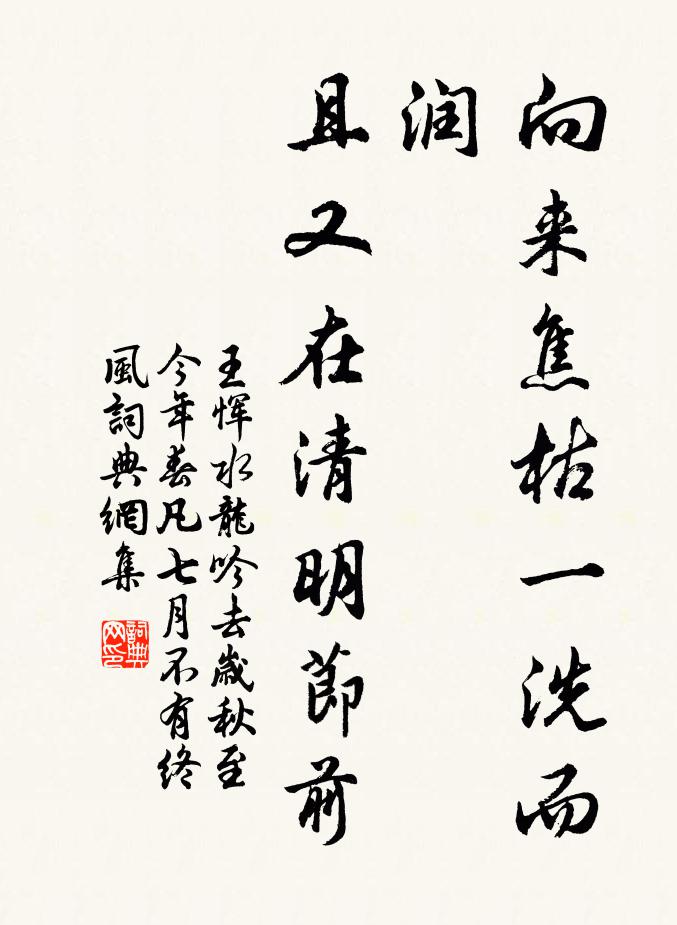 向来焦枯一洗而
润
且又在清明節前
王惲水龍吟去歲秋至
今年春凡七月不有终
風詞典網集
詞典
网印